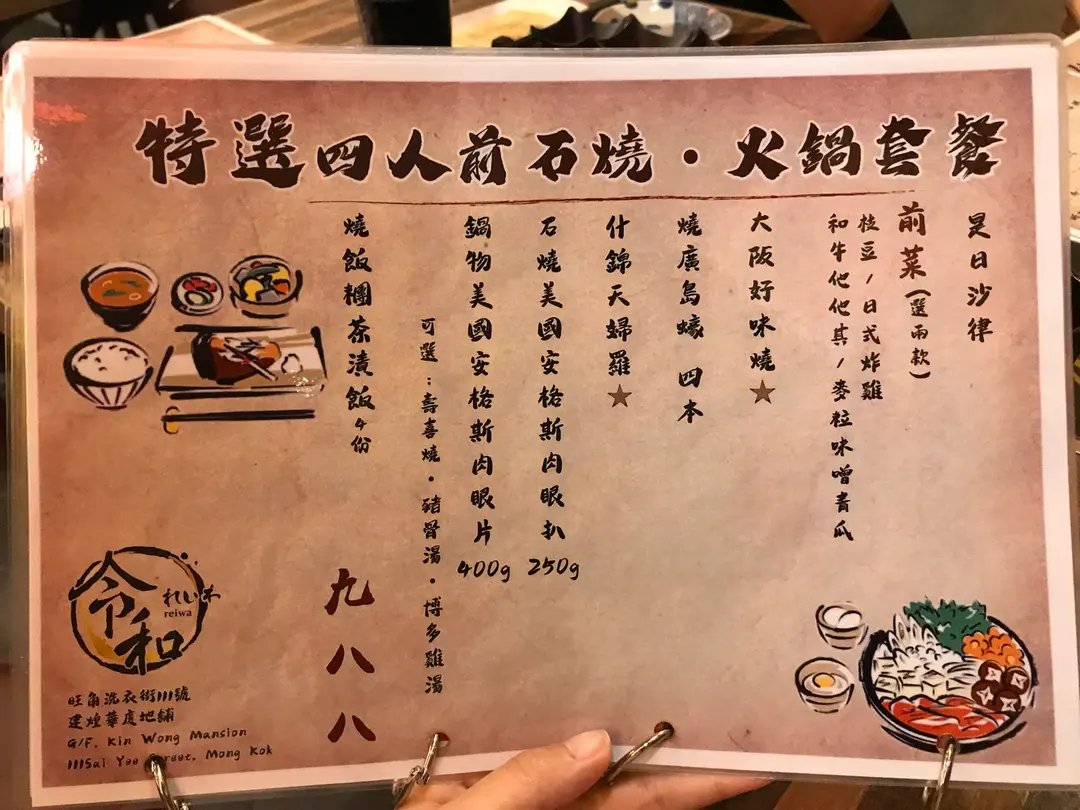 特選四人前石燒・火鍋套餐
是日沙律
前菜(選兩款)
枝豆/日式炸雞
和牛他他其/麥粒味噌青瓜
大阪好味燒★
燒廣島蠔 四本
什錦天婦羅★
石燒美國安格斯肉眼扒250g
鍋物美國安格斯肉眼片400g
可選:壽喜燒・豬骨湯・博多雞湯
燒飯糰茶漬飯4份
九八八
令和
れいわ
reiwa
旺角洗衣街111號
建煌華廈地舖
G/F, Kin Wong Mansion
111Sai Yee Street, Mong Kok